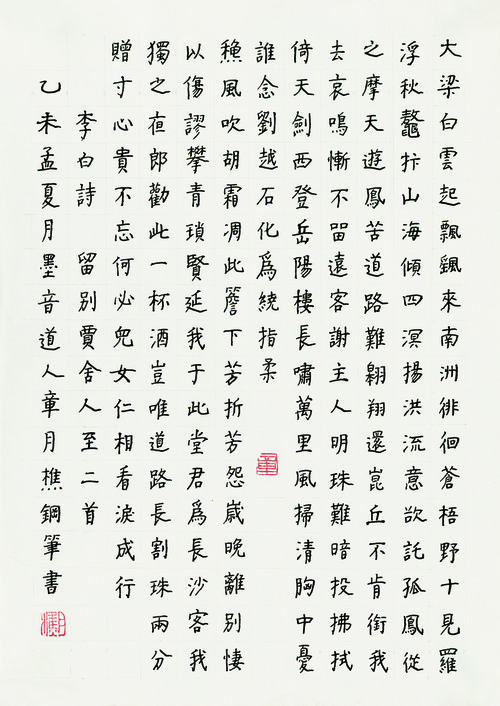 大梁白雲起飄颻來南洲徘徊蒼梧野十見羅
浮秋鼇抃山海傾四溟揚洪流意欲託孤鳳從
之摩天遊鳳苦道路難翱翔還崑丘不肯銜我
去哀鳴慚不留遠客謝主人明珠難暗投拂拭
倚天劍西登岳陽樓長嘯萬里風掃清胸中憂
誰念劉越石化爲繞指柔
穐風吹胡霜凋此簷下芳折芳怨歲晚離別悽
以傷謬攀青瑣賢延我于此堂君爲長沙客我
獨之夜郎勸此一杯酒豈唯道路長割珠兩分
贈寸心貴不忘何必兒女仁相看淚成行
李白詩 留別賈舍人至二首
乙未孟夏月墨音道人章月樵鋼筆書